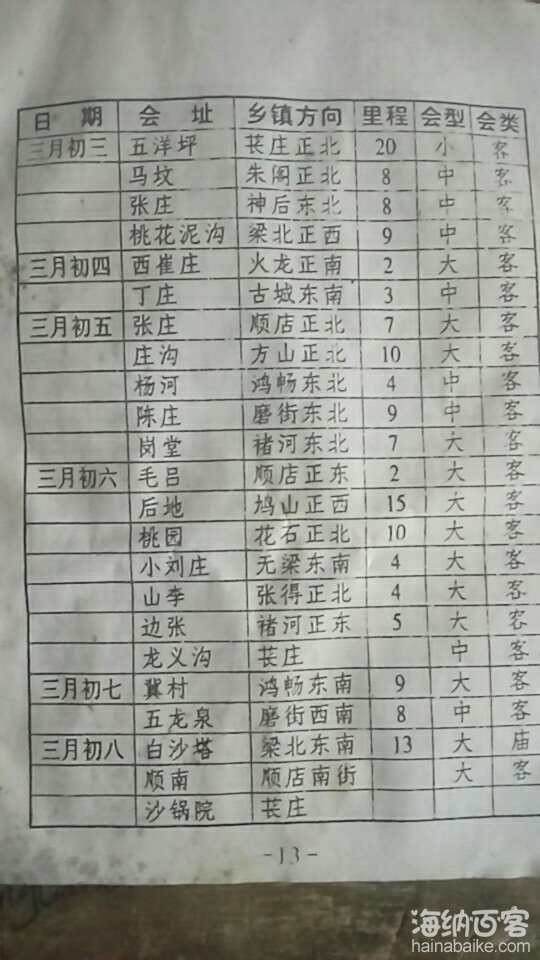 日 期 会 址 乡镇方向 里程 会型 会类
三月初三 五洋坪 苌庄正北 20 小 客
马坟 朱阁正北 8 中 客
张庄 神后东北 8 中 客
桃花泥沟 梁北正西 9 中 客
三月初四 西崔庄 火龙正南 2 大 客
丁庄 古城东南 3 中 客
三月初五 张庄 顺店正北 7 大 客
庄沟 方山正北 10 大 客
杨河 鸿畅东北 4 中 客
陈庄 磨街东北 9 中 客
岗堂 褚河东北 7 大 客
三月初六 毛吕 顺店正东 2 大 客
后地 鸠山正西 15 大 客
桃园 花石正北 10 大 客
小刘庄 无梁东南 4 大 客
山李 张得正北 4 大 客
边张 褚河正东 5 大 客
龙义沟 苌庄 中 客
三月初七 冀村 鸿畅东南 9 大 客
五龙泉 磨街西南 8 中 客
三月初八 白沙塔 梁北东南 13 大 庙
顺南 顺店南街 大 客
沙锅院 苌庄
-13-
海纳百客
hainabaike.com